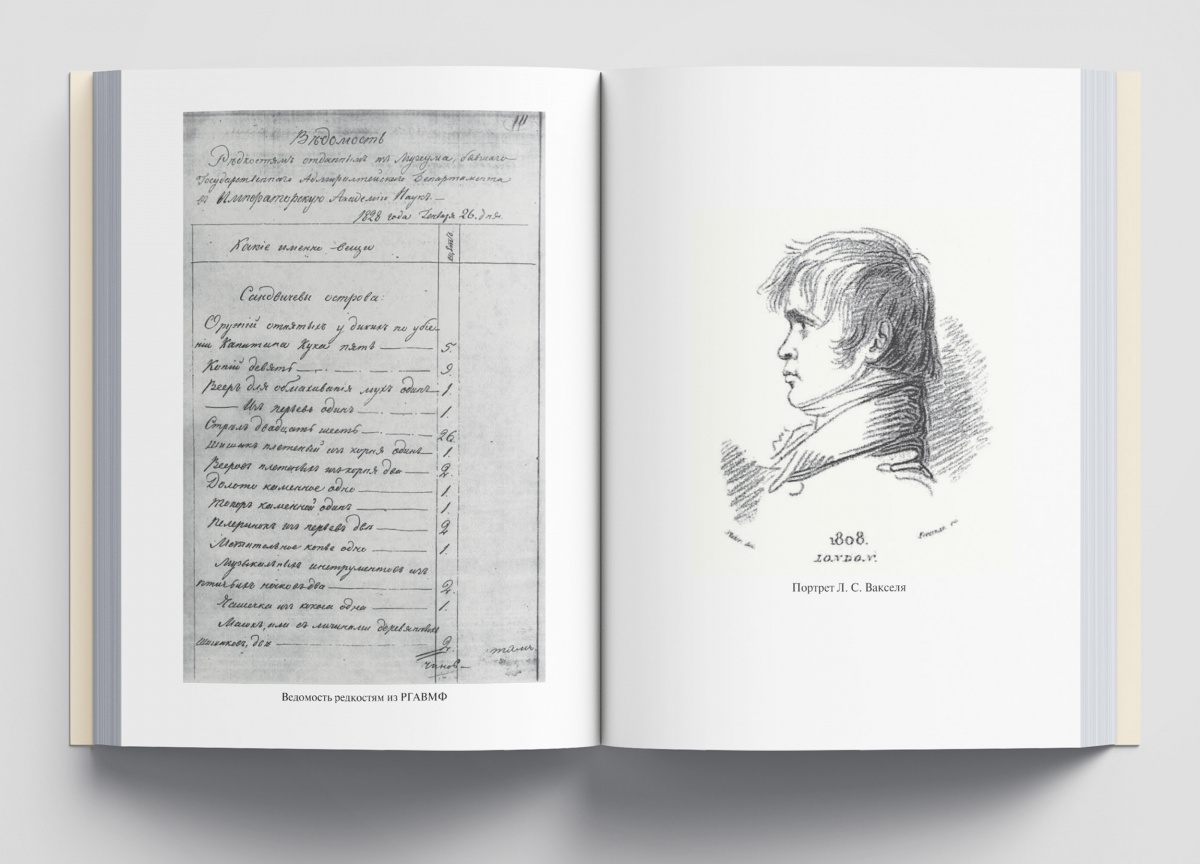 Вѣдомость
Рѣдкостямъ отданнымъ изъ Музеума, бывшаго
Государственнаго Адмиралтейскаго Департамента
въ Императорскую Академію Наукъ.—
1828 года Генваря 26. дня.
Какіе именно вещи
Сандвичевы острова:
Оружій отнятыхъ у дикихъ по убіе-
ніи Капитана Кука пять — 5.
Копій девять — 9.
Вееръ для обмахиванія мухъ одинъ — 1.
— Изъ перьевъ одинъ — 1.
Стрѣлъ двадцать шесть — 26.
Шишакъ плетеный изъ корня одинъ — 1.
Вееровъ плетеныхъ изъ корня два — 2.
Долото каменное одно — 1.
Топоръ каменной одинъ — 1.
Пелеринокъ изъ перьевъ два — 2
Метательное копье одно — 1.
Музыкальныхъ инструментовъ изъ
два — 2.
Чашечка изъ кокоса одна — 1.
Масокъ, или съ личинами деревянныхъ
шишаковъ, два — 2.
Ведомость редкостям из РГАВМФ
1808.
LONDON.
Портрет Л. С. Вакселя